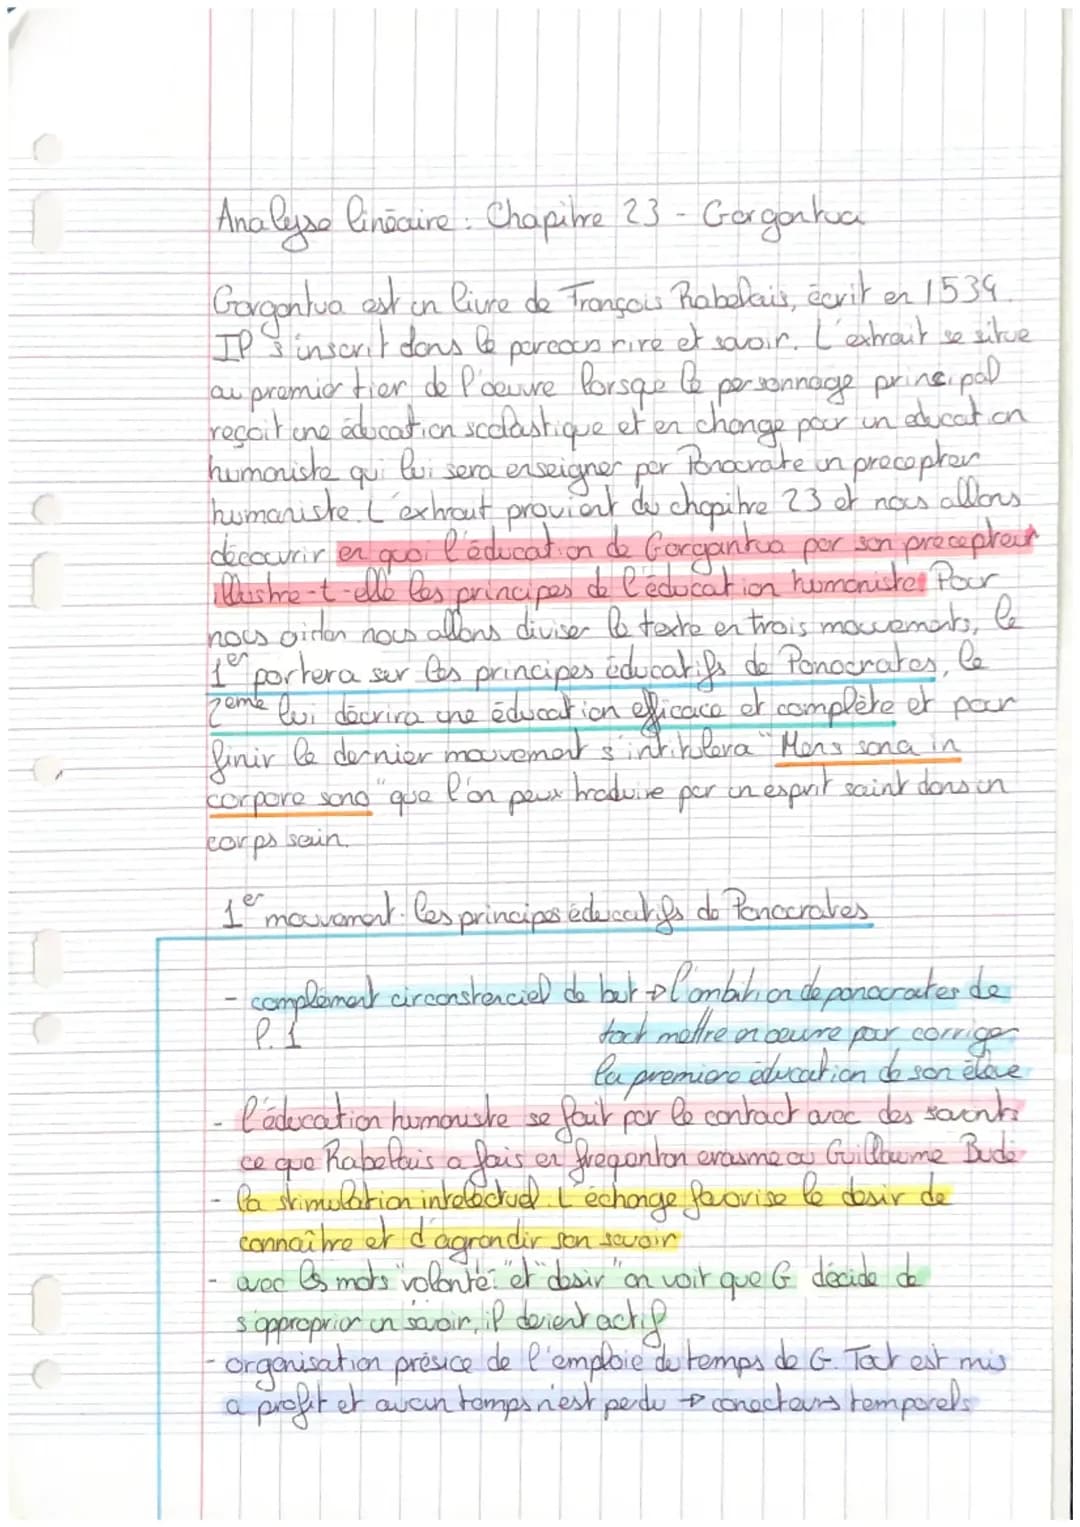 Analyse linéaire : Chapitre 23 - Gargantua
Gargantua est un livre de François Rabelais, écrit en 1534.
Il s'inscrit dans le parcours rire et savoir. L'extrait se situe
au premier tier de l'oeuvre lorsque le personnage principal
reçoit une éducation scolastique et en change pour un education
humaniste qui lui sera enseigner par Ponocrate un precepteur
humaniste. L'extrait provient du chapitre 23 et nous allons
découvrir en quoi l'éducation de Gargantua par son précepteur
illustre-t-elle les principes de l'éducation humaniste. Pour
nous aider nous allons diviser le texte en trois mouvements, le
1er portera sur les principes éducatifs de Ponocrates, le
2eme lui décrira une éducation efficace et complète et pour
finir le dernier mouvement s'intitulera "Mens sana in
corpore sano" que l'on peux traduire par un esprit saint dans un
corps sain.
1er mouvement : les principes éducatifs de Ponocrates
- complément circonstenciel de but → l'ambition de ponocrates de
P. 1 tout mettre en oeuvre pour corriger
la premiere éducation de son élève
- l'éducation humaniste se fait par le contact avec des savants
ce que Rabelais a fais en fréquantan erasme ou Guillaume Budé
- la stimulation intelectuel. L'échange favorise le desir de
connaître et d'agrandir son savoir
- avec les mots "volonté" et "desir" on voit que G décide de
s'approprier un savoir, il devient actif
- organisation présice de l'emploie du temps de G. Tout est mis
a profit et aucun temps n'est perdu → conecteurs temporels